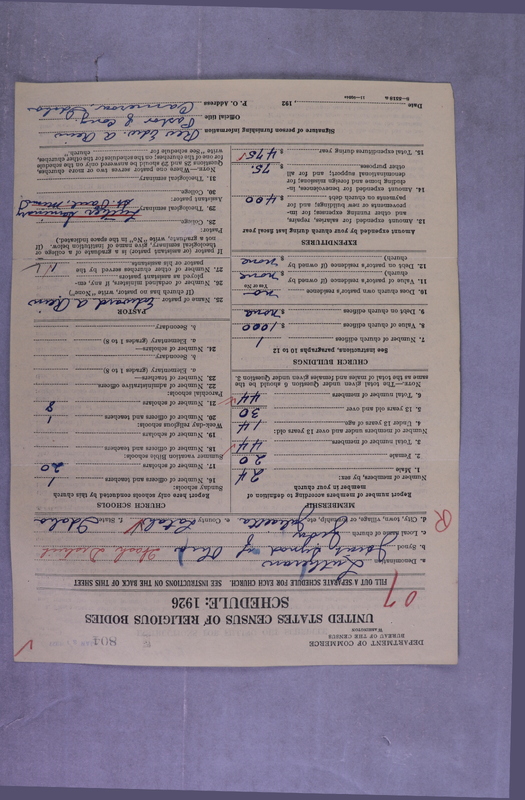 DEPARTMENT OF COMMERCE
BUREAU OF THE CENSUS
WASHINGTON
804
UNITED STATES CENSUS OF RELIGIOUS BODIES
SCHEDULE: 1926
FILL OUT SEPARATE SCHEDULE FOR EACH CHURCH. SEE INSTRUCTIONS ON THE BACK OF THIS SHEET
07
a. Denomination Lutheran
b. Synod Joint Synod of Ohio
c. Local name of church
d. City, town, village, or township, etc. Juliaetta e. County Latah f. State Idaho
R
MEMBERSHIP
Report number of members according to definition of
member in your church
Number of members, by sex:
1. Male 24
2. Female 20
3. Total number of members 44
Number of members under and over 13 years old:
4. Under 13 years of age 14
5. 13 years old and over 30
6. Total number of members 44
NOTE.—The total given under Question 6 should be the
same as the total of males and females given under Question 3.
CHURCH BUILDINGS
See instructions, paragraphs 10 to 12
7. Number of church edifices 1
8. Value of church edifices $ 1000
9. Debt on church edifices $ none
10. Does church own pastor's residence no
Yes or No
11. Value of pastor's residence (if owned by
church) $ none
12. Debt on pastor's residence (if owned by
church) $ none
EXPENDITURES
Amount expended by your church during last fiscal year
13. Amount expended for salaries, repairs,
and other running expenses; for im-
provements or new buildings; and for
payments on church debt $ 400
14. Amount expended for benevolences, in-
cluding home and foreign missions; for
denominational support; and for all
other purposes $ 75
15. Total expenditures during year $ 475
CHURCH SCHOOLS
Report here only schools conducted by this church
Sunday schools:
16. Number of officers and teachers 1
17. Number of scholars 20
Summer vacation Bible schools:
18. Number of officers and teachers
19. Number of scholars
Week-day religious schools:
20. Number of officers and teachers 1
21. Number of scholars 8
Parochial schools:
22. Number of administrative officers
23. Number of teachers—
a. Elementary (grades 1 to 8)
b. Secondary
24. Number of scholars—
a. Elementary (grades 1 to 8)
b. Secondary
PASTOR
25. Name of pastor Edward A Rein
(If church has no pastor, write "None")
26. Number of ordained ministers, if any, em-
ployed as assistant pastors
27. Number of other churches served by the
pastor or his assistants
If pastor (or assistant pastor) is a graduate of a college or
theological seminary, give name of institution below. (If
not a graduate, write "No" in the space indicated.)
Pastor:
28. College
29. Theological seminary Luther Seminary
St Paul, Minn
Assistant pastor:
30. College
31. Theological seminary
Signature of person furnishing information Rev Edw. A Rein
Official title Pastor of Cong.
Date 192 P. O. Address Cameron, Idaho